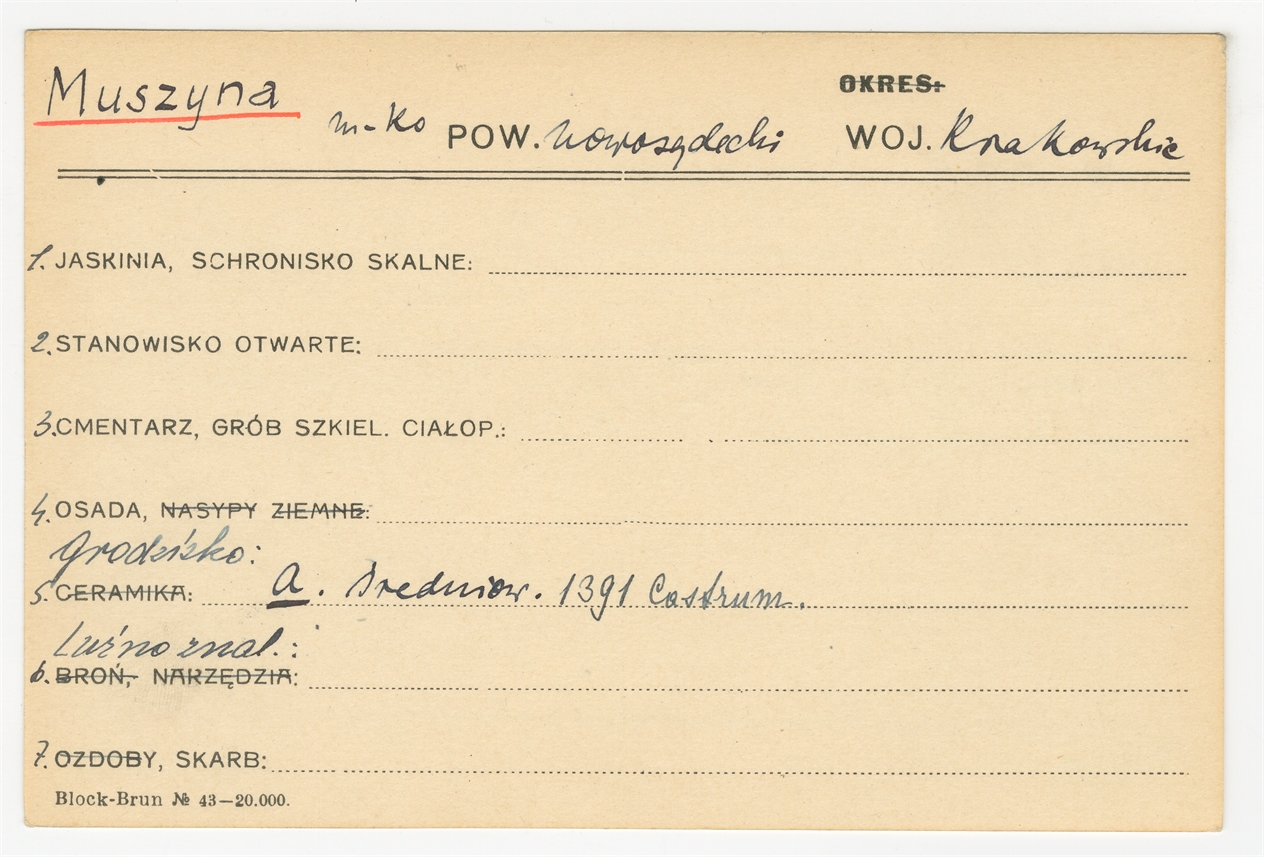 Muszyna
OKRES:
m-ko POW. nowosądecki WOJ. Krakowskie
1. JASKINIA, SCHRONISKO SKALNE:
2. STANOWISKO OTWARTE:
3. CMENTARZ, GRÓB SZKIEL. CIAŁOP.:
4. OSADA, NASYPY ZIEMNE:
Grodzisko:
5. CERAMIKA: a. średniow. 1391 Castrum.
Luźno znal.:
6. BROŃ, NARZĘDZIA:
7. OZDOBY, SKARB:
Block-Brun № 43—20.000.